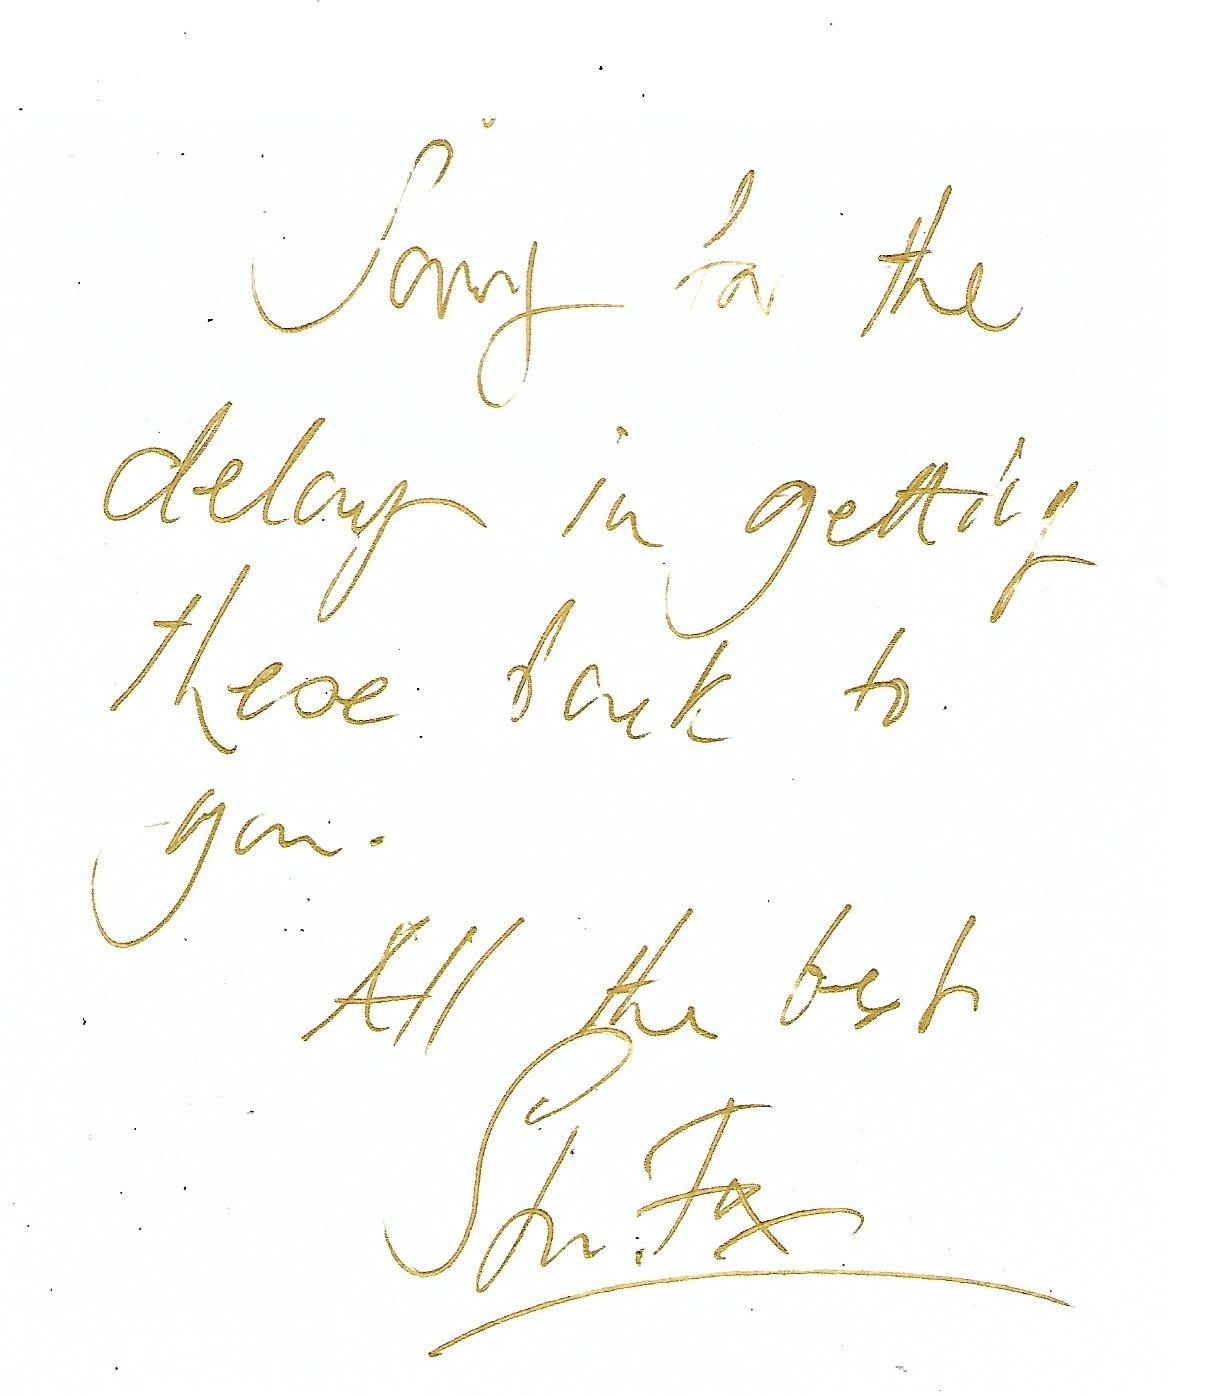 Sorry for the
delay in getting
these back to
you.
All the best
Stu. Fox